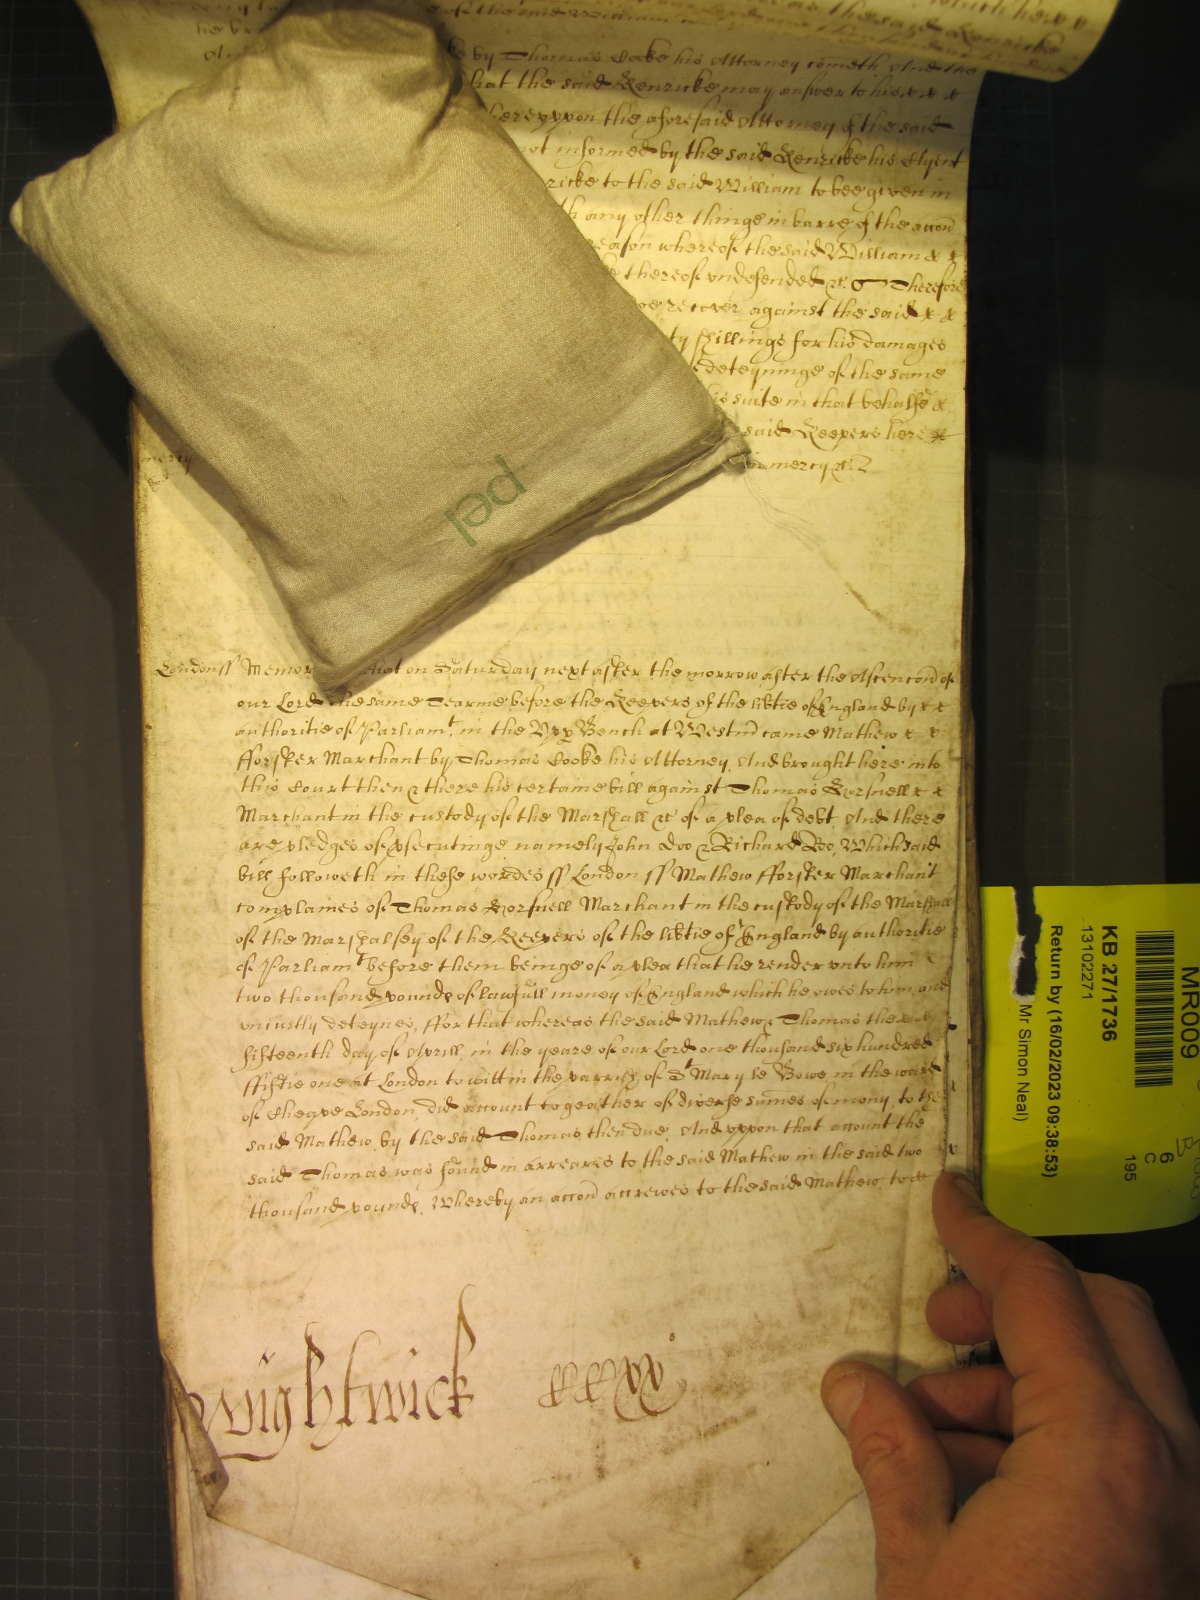 by Thomas Cooke his Attorney cometh And the
that the said Kenricke may answer to his
hereuppon the aforesaid Attorney of the said
not informed by the said Kenricke his Clyent
ricke to the said William to bee given in
any other thinge in barre of the accon
reason whereof the said William &
thereof undefended &c. Therefore
recover against the said
ty shillings for his damages
deteyninge of the same
his suite in that behalfe
said Keepers here
in mercy &c.
mercy
pel
London ss Memor that on Saturday next after the morrow after the Ascencon of
our Lord the same Tearme before the Keepers of the libtie of England by
authoritie of Parliamt. in the Upp Bench at Westm came Mathew
fforster Marchant by Thomas Cooke his Attorney. And brought here into
this Court then & there his certaine bill against Thomas
Marchant in the custody of the Marshall &c of a plea of debt. And there
are pledges of psecutinge namely John Doo & Richard Roo, Which said
bill followeth in these wordes ss London ss Mathew fforster Marchant
complaines of Thomas Marchant in the custody of the Marshall
of the Marshalsey of the Keepers of the libtie of England by authoritie
of Parliamt before them beinge of a plea that he render unto him
two thousand pounds of lawfull money of England which he owes to him and
uniustly deteynes, ffor that whereas the said Mathew & Thomas the
fifteenth day of Aprill in the yeare of our Lord one thousand six hundred
ffiftie one at London to witt in the parrish of St Mary le Bowe in the ward
of Cheape London, did account togeather of diverse sumes of mony, to the
said Mathew by the said Thomas then due, And uppon that account the
said Thomas was found in arreares to the said Mathew in the said two
thousand pounds, Whereby an accon accrewes to the said Mathew to
Wightwick
MR009
KB 27/1736
13102271
Return by (16/02/2023 09:38:53)
Mr Simon Neal)
6
C
195